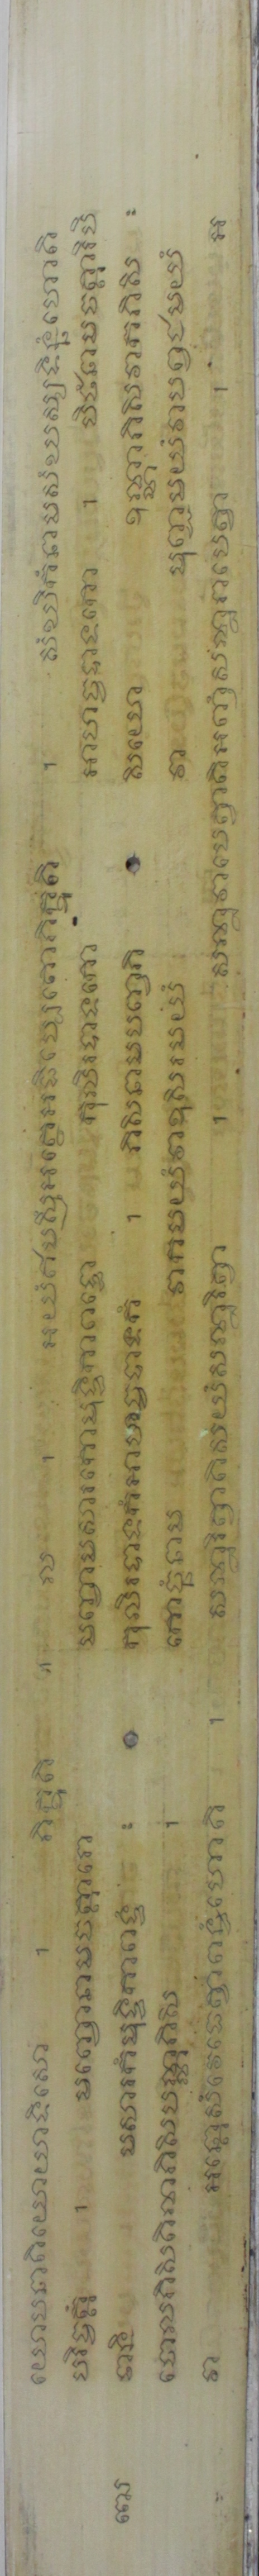 យោបនាតិយោយាទិសោ ។ ភិក្ខុតិ ។ ល ។ អយំឥមស្មឹអត្ថេអធិប្បេតោភិក្ខុតិ ។ សំឃិកំនាមសំឃស្សទិន្នំហោតិ
បរិច្ចត្តំ ។ មញ្ចោនាមចត្តារោ មញ្ចាមសារកោពុន្ទិកាពទ្ធោ កុលិរបាទកោ អាហច្ចបាទកោ ។ បិឋំនាមចត្តារិបិ
ឋានិ មសារកំពុន្ទិកាពទ្ធំ ៖ កុលិរបាទកំអាហច្ចបាទកំ ។ ភិសិនាមបញ្ចភិ សិយោ ឧណ្ណាភិសិវាកភិសិ ៖
ចោលភិសិតិណភិសិបណ្ណភិសិ ។ កោច្ឆំនាម វាកមយំវាឧសិរមយំ វា មុញ្ជមយំវាបព្វជមយំ
វា អន្តោសំវេធេត្វាពទ្ធំហោតិ ។ សន្ថរិត្វាតិសយំសន្ថរិត្វា ។ សន្ថរាបេត្វាតិអញ្ញំសន្ថរាបេត្វា ។ អ